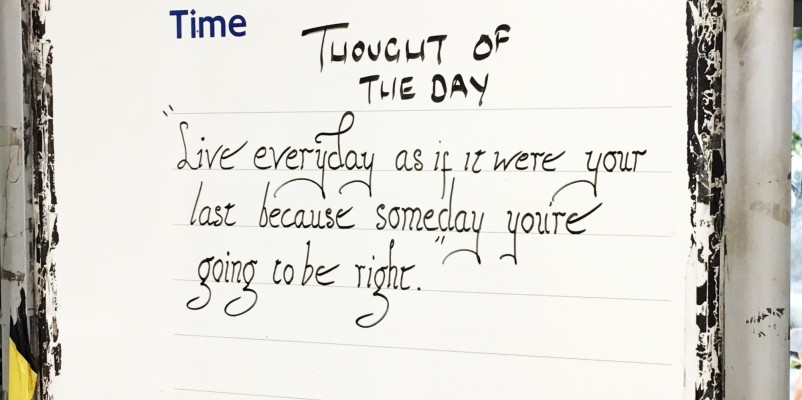 Time
THOUGHT OF
THE DAY
"Live everyday as if it were your
last because someday you're
going to be right."